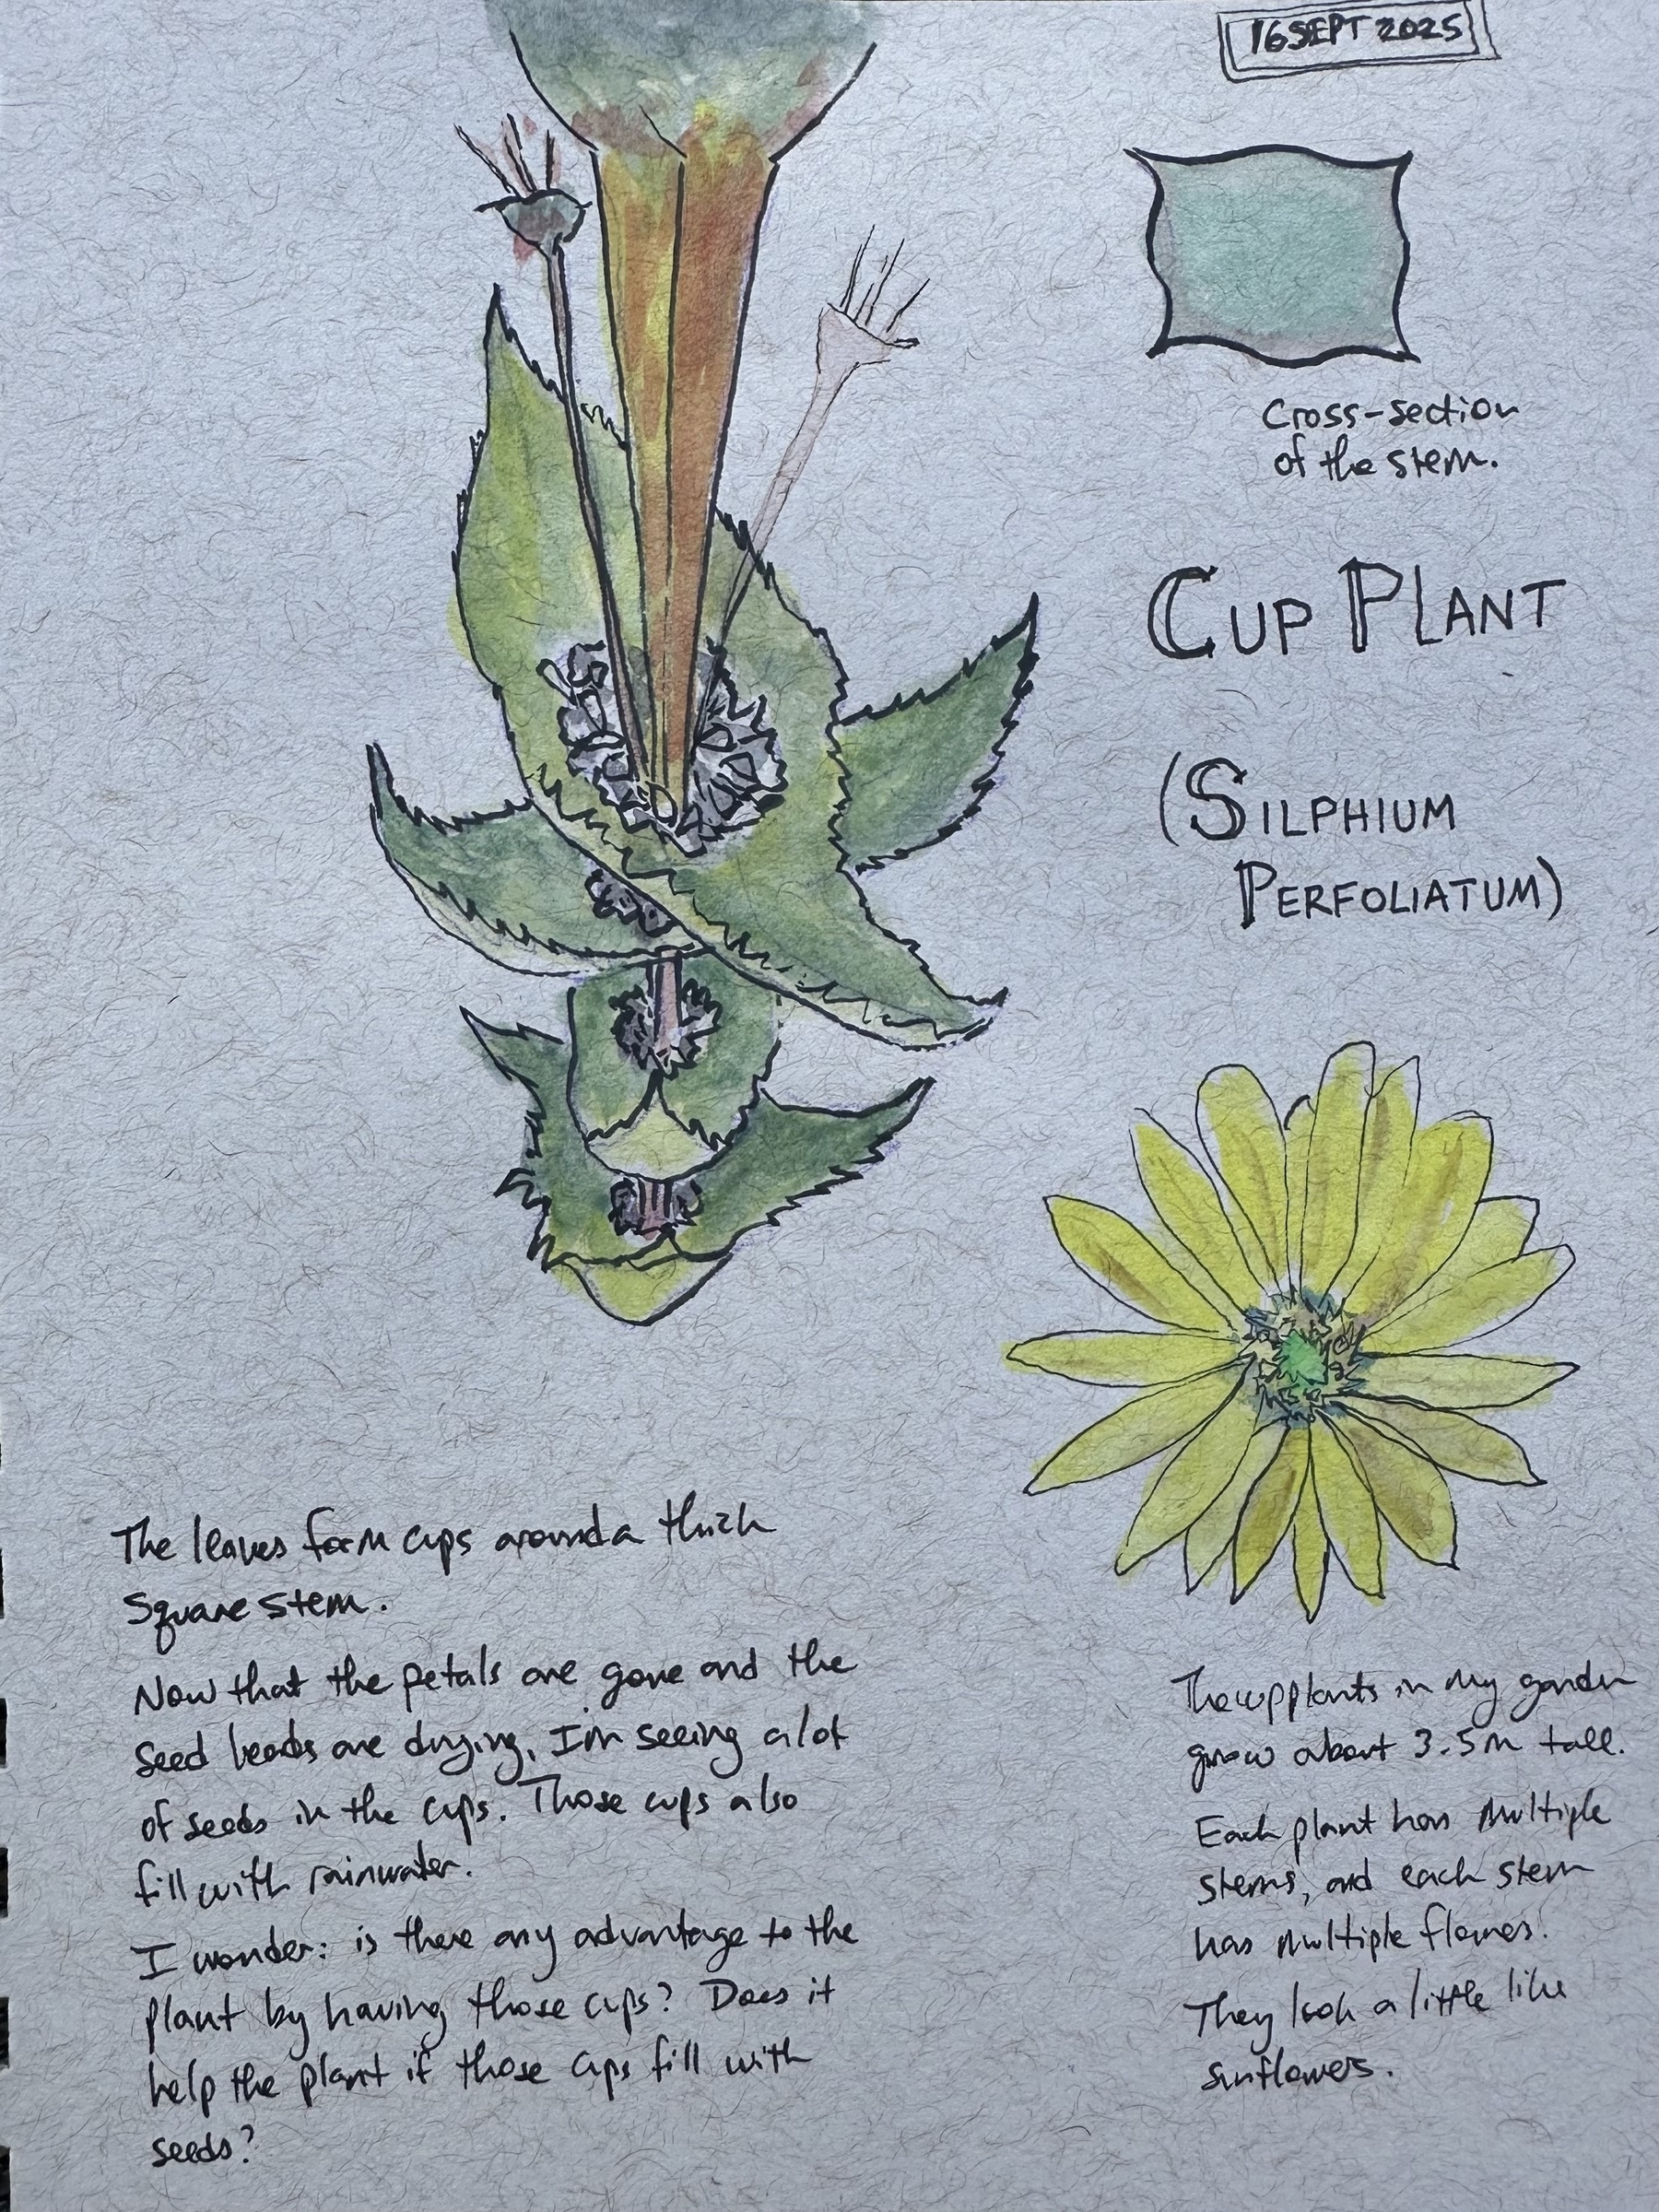 16 SEPT 2025
Cross-section
of the stem.
CUP PLANT
(SILPHIUM
PERFOLIATUM)
The leaves form cups around a thick
square stem.
Now that the petals are gone and the
seed heads are drying, I'm seeing a lot
of seeds in the cups. Those cups also
fill with rainwater.
I wonder: is there any advantage to the
plant by having those cups? Does it
help the plant if those cups fill with
seeds?
The cup plants in my garden
grow about 3.5m tall.
Each plant has multiple
stems, and each stem
has multiple flowers.
They look a little like
sunflowers.